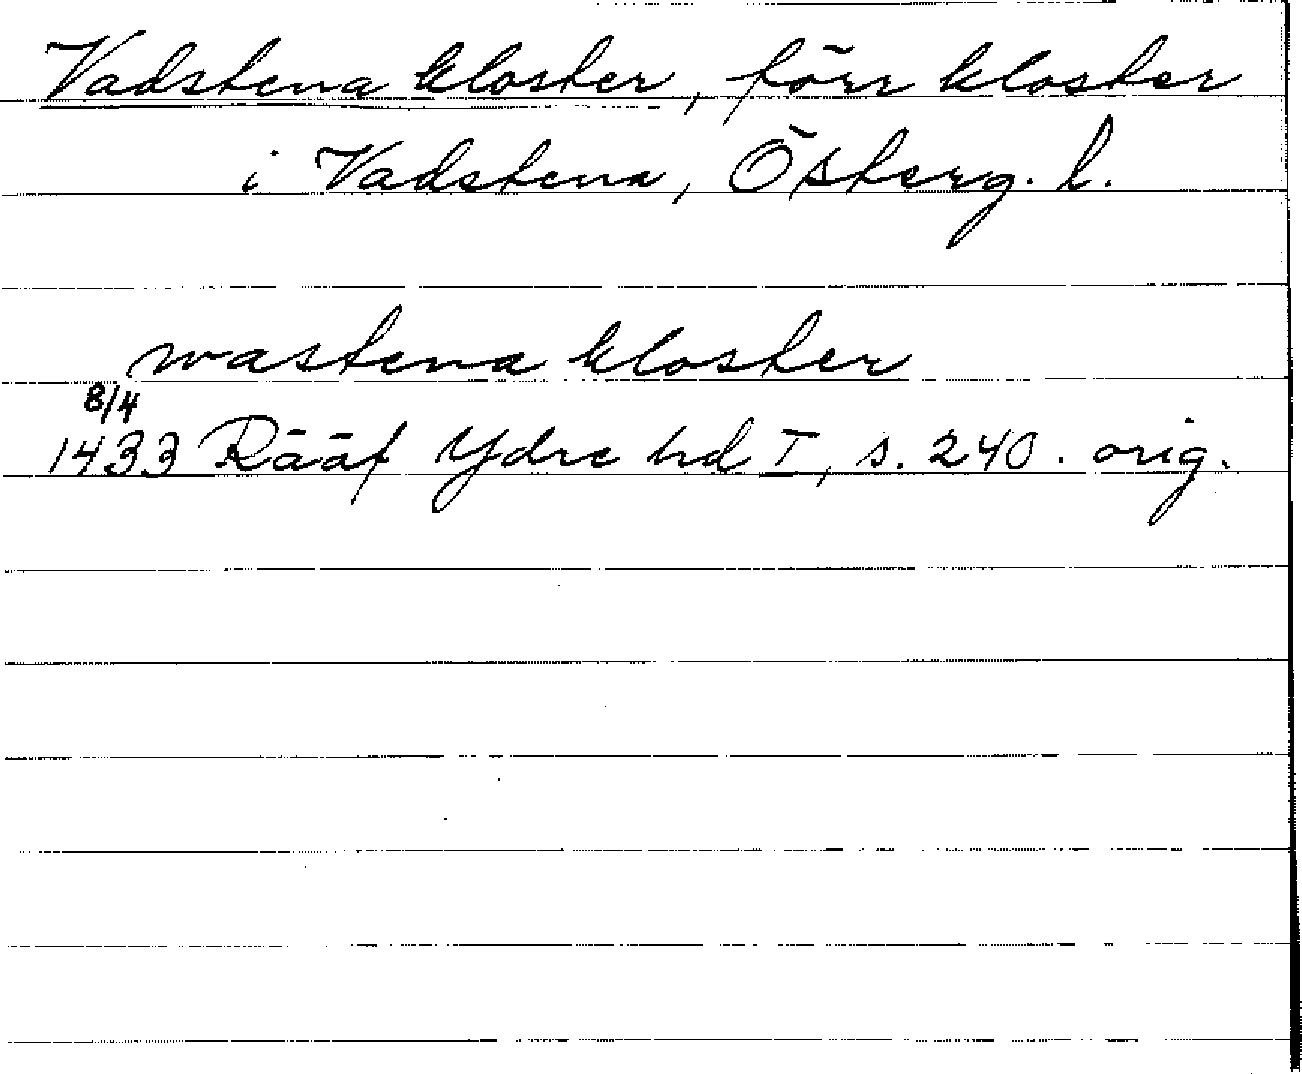 Vadstena kloster, förr kloster
i Vadstena, Österg. l.
wastena kloster
8/4
1433 Rääf Ydre hd I, s. 240. orig.